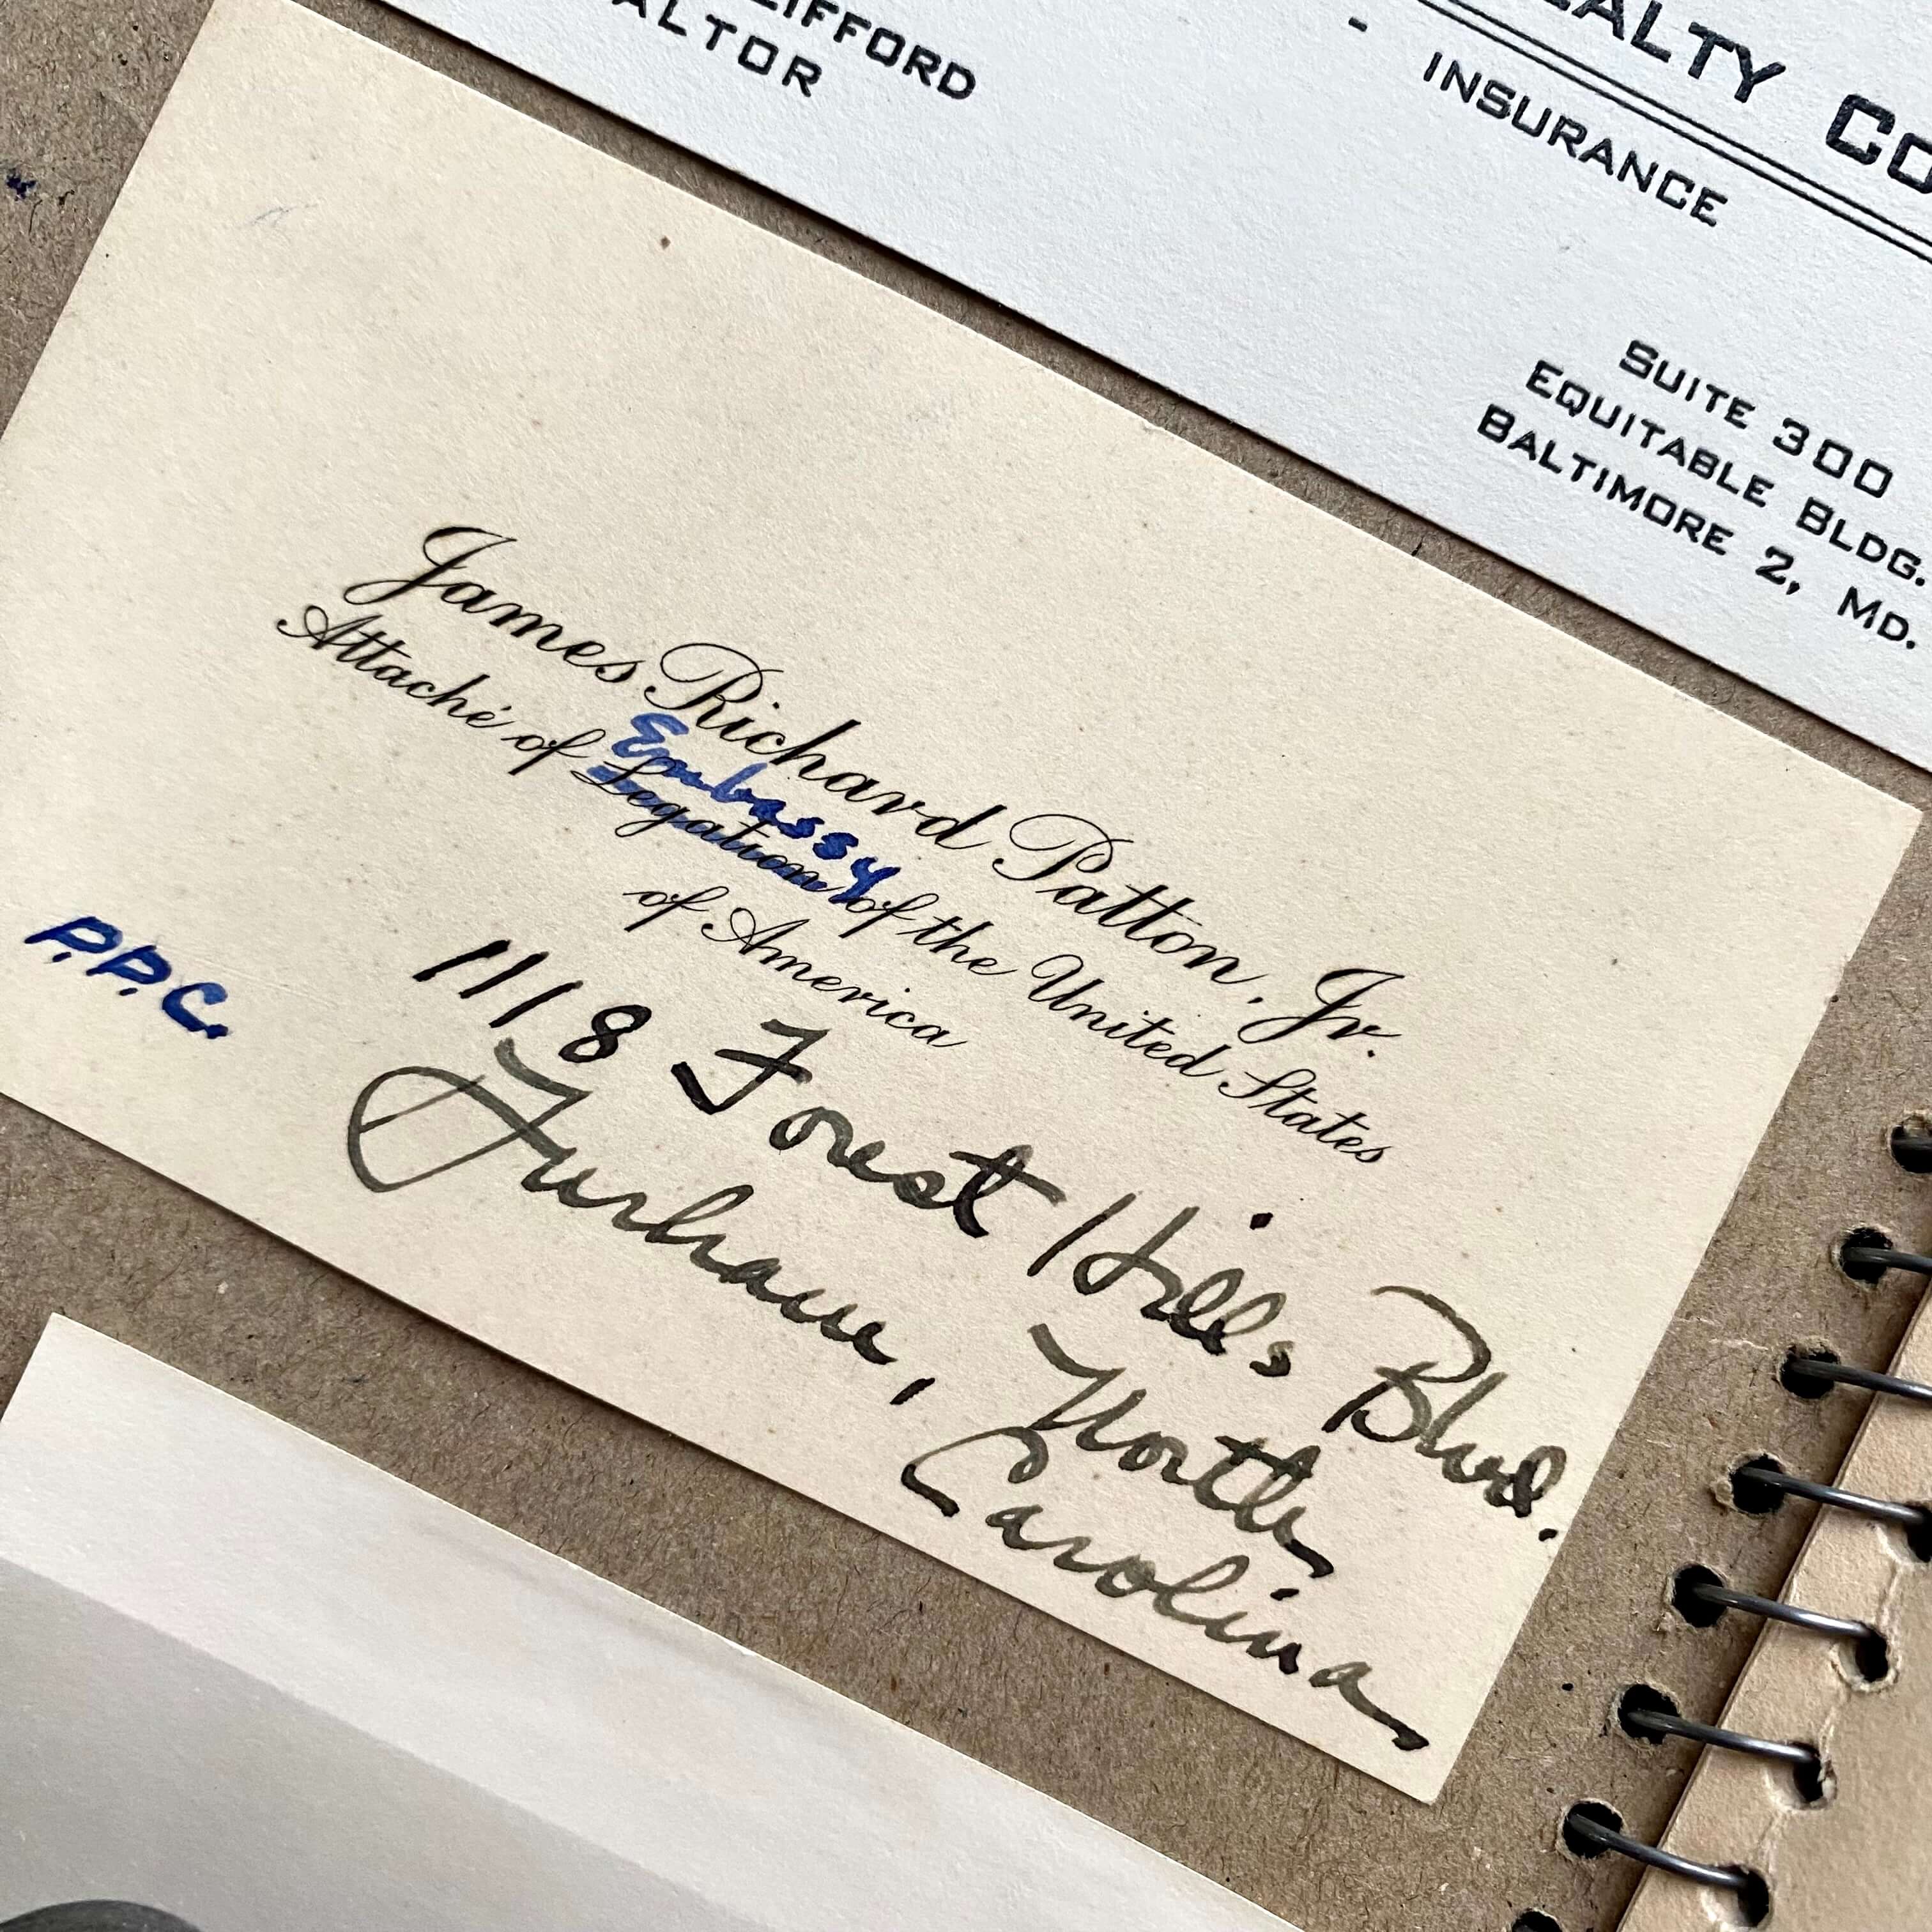 IFFORD
ALTOR
EALTY CO
- INSURANCE
SUITE 300
EQUITABLE BLDG.
BALTIMORE 2, MD.
James Richard Patton, Jr.
Embassy
Attaché of Legation of the United States
of America
P.P.C.
1118 Forest Hills Blvd.
Durham, North
Carolina